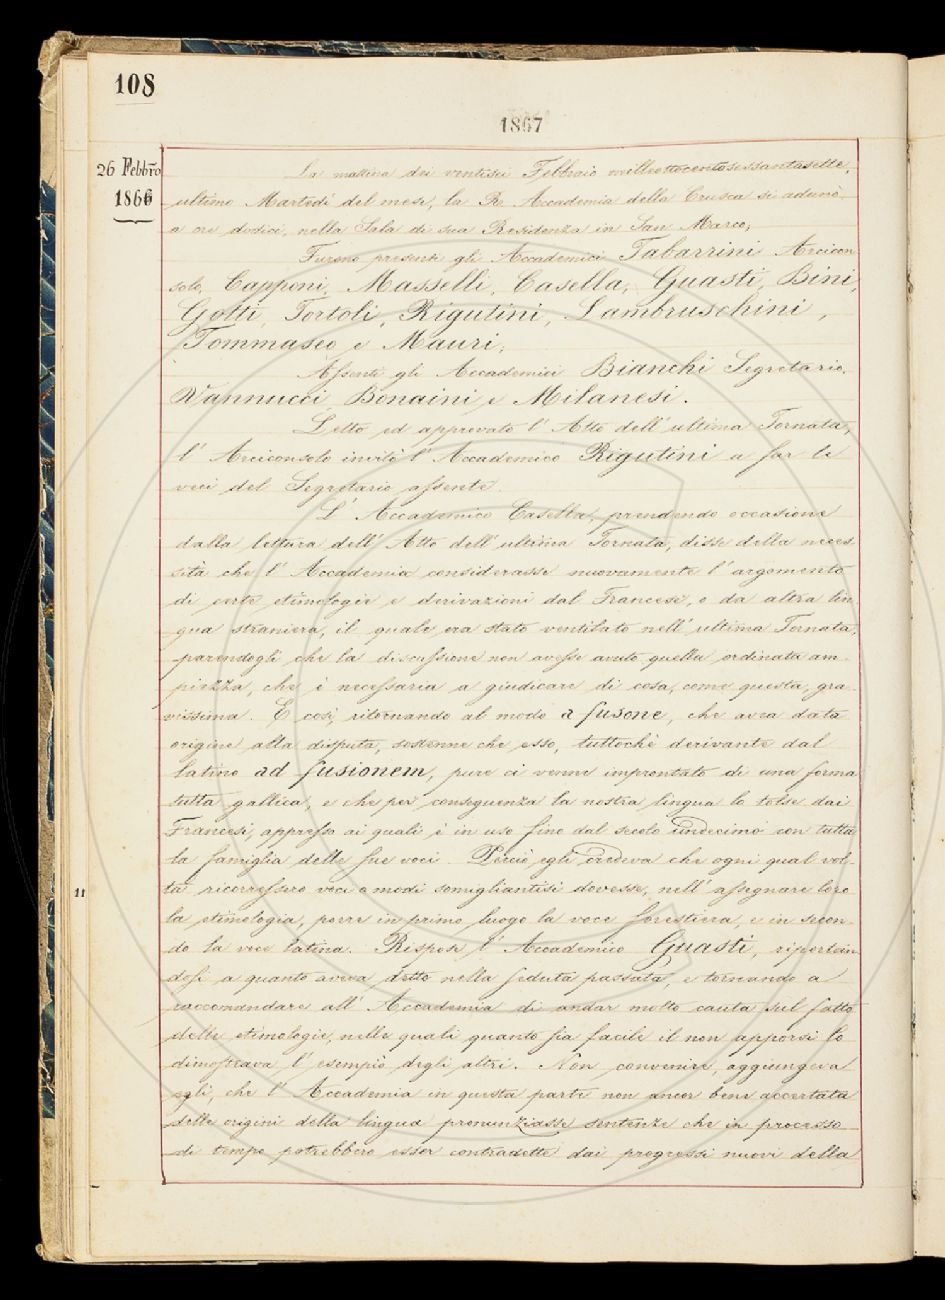 108
1867
26 Febbro
1866
La mattina dei ventisei Febbraio milleottocentosessantasette,
ultimo Martedì del mese, la R. Accademia della Crusca si adunò,
a ore dodici, nella Sala di sua Residenza in San Marco,
Furono presenti gli Accademici Tabarrini Arcicon
solo, Capponi, Masselli, Casella, Guasti, Bini,
Gotti, Tortoli, Rigutini, Lambruschini,
Tommaseo e Mauri;
Assenti gli Accademici Bianchi Segretario,
Vannucci, Bonaini e Milanesi.
Letto ed approvato l' Atto dell' ultima Tornata,
l' Arciconsolo invitò l' Accademico Rigutini a far le
veci del Segretario assente.
L' Accademico Casella, prendendo occasione
dalla lettura dell' Atto dell' ultima Tornata, disse della neces
sità che l' Accademia considerasse nuovamente l' argomento
di certe etimologie e derivazioni dal Francese, o da altra lin
gua straniera, il quale era stato ventilato nell' ultima Tornata,
parendogli che la discussione non avesse avuto quella ordinata am-
piezza, che è necessaria a giudicare di cosa, come questa, gra-
vissima. E così, ritornando al modo a fusone, che avea data
origine alla disputa, sostenne che esso, tuttochè derivante dal
latino ad fusionem, pure ci venne improntato di una forma
tutta gallica, e che per conseguenza la nostra lingua lo tolse dai
Francesi, appresso ai quali è in uso fino dal secolo undecimo con tutta
la famiglia delle sue voci. Perciò egli credeva che ogni qual vol-
ta ricorressero voci e modi somigliantisi dovesse, nell' assegnare loro
11
la etimologia, porre in primo luogo la voce forestiera, e in secon-
do la voce latina. Rispose l' Accademico Guasti, riportan
dosi a quanto aveva detto nella seduta passata, e tornando a
raccomandare all' Accademia di andar molto cauta sul fatto
delle etimologie, nelle quali quanto sia facile il non apporsi lo
dimostrava l' esempio degli altri. Non convenire, aggiungeva
egli, che l' Accademia in questa parte non ancor bene accertata
delle origini della lingua pronunziasse sentenze che in processo
di tempo potrebbero esser contradette dai progressi nuovi della